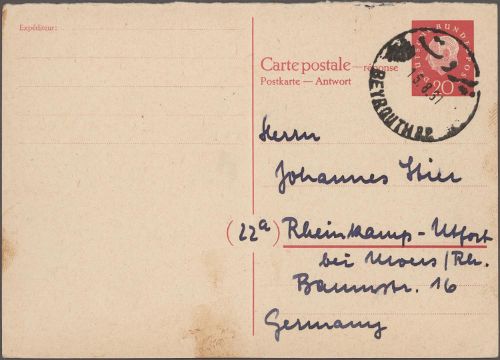 Expéditeur:
DEUTSCHE BUNDESPOST
20
BEYROUTH R.P.
Carte postale — réponse
Postkarte — Antwort
Herrn
Johannes Stier
(22a) Rheinkamp-Utfort
bei Moers/Rh.
Baumstr. 16
Germany